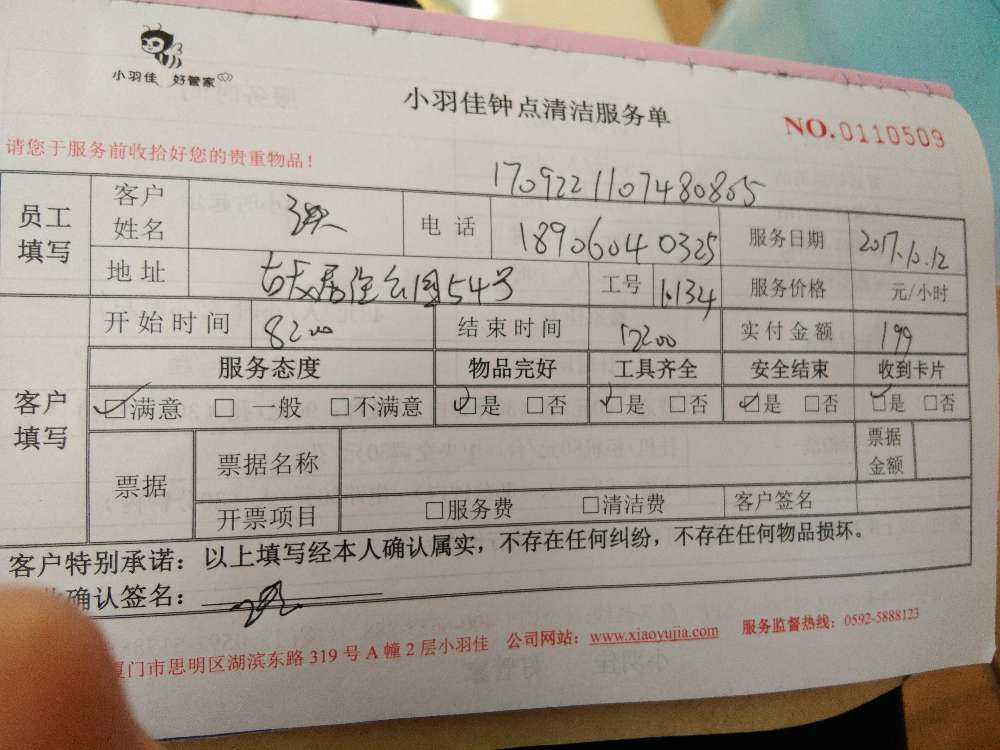 小羽佳 好管家
小羽佳钟点清洁服务单
NO.0110509
请您于服务前收拾好您的贵重物品！
1709221107480805
员工填写 客户姓名 电话 18906040325 服务日期 2017.10.12
地址 古天居住公园54号 工号 1.134 服务价格 元/小时
客户填写 开始时间 8:00 结束时间 12:00 实付金额 199
服务态度 物品完好 工具齐全 安全结束 收到卡片
☑满意 □一般 □不满意 ☑是 □否 ☑是 □否 ☑是 □否 ☑是 □否
票据 票据名称 票据金额
开票项目 □服务费 □清洁费 客户签名
客户特别承诺：以上填写经本人确认属实，不存在任何纠纷，不存在任何物品损坏。
确认签名：
厦门市思明区湖滨东路319号A幢2层小羽佳 公司网站：www.xiaoyujia.com 服务监督热线：0592-5888123